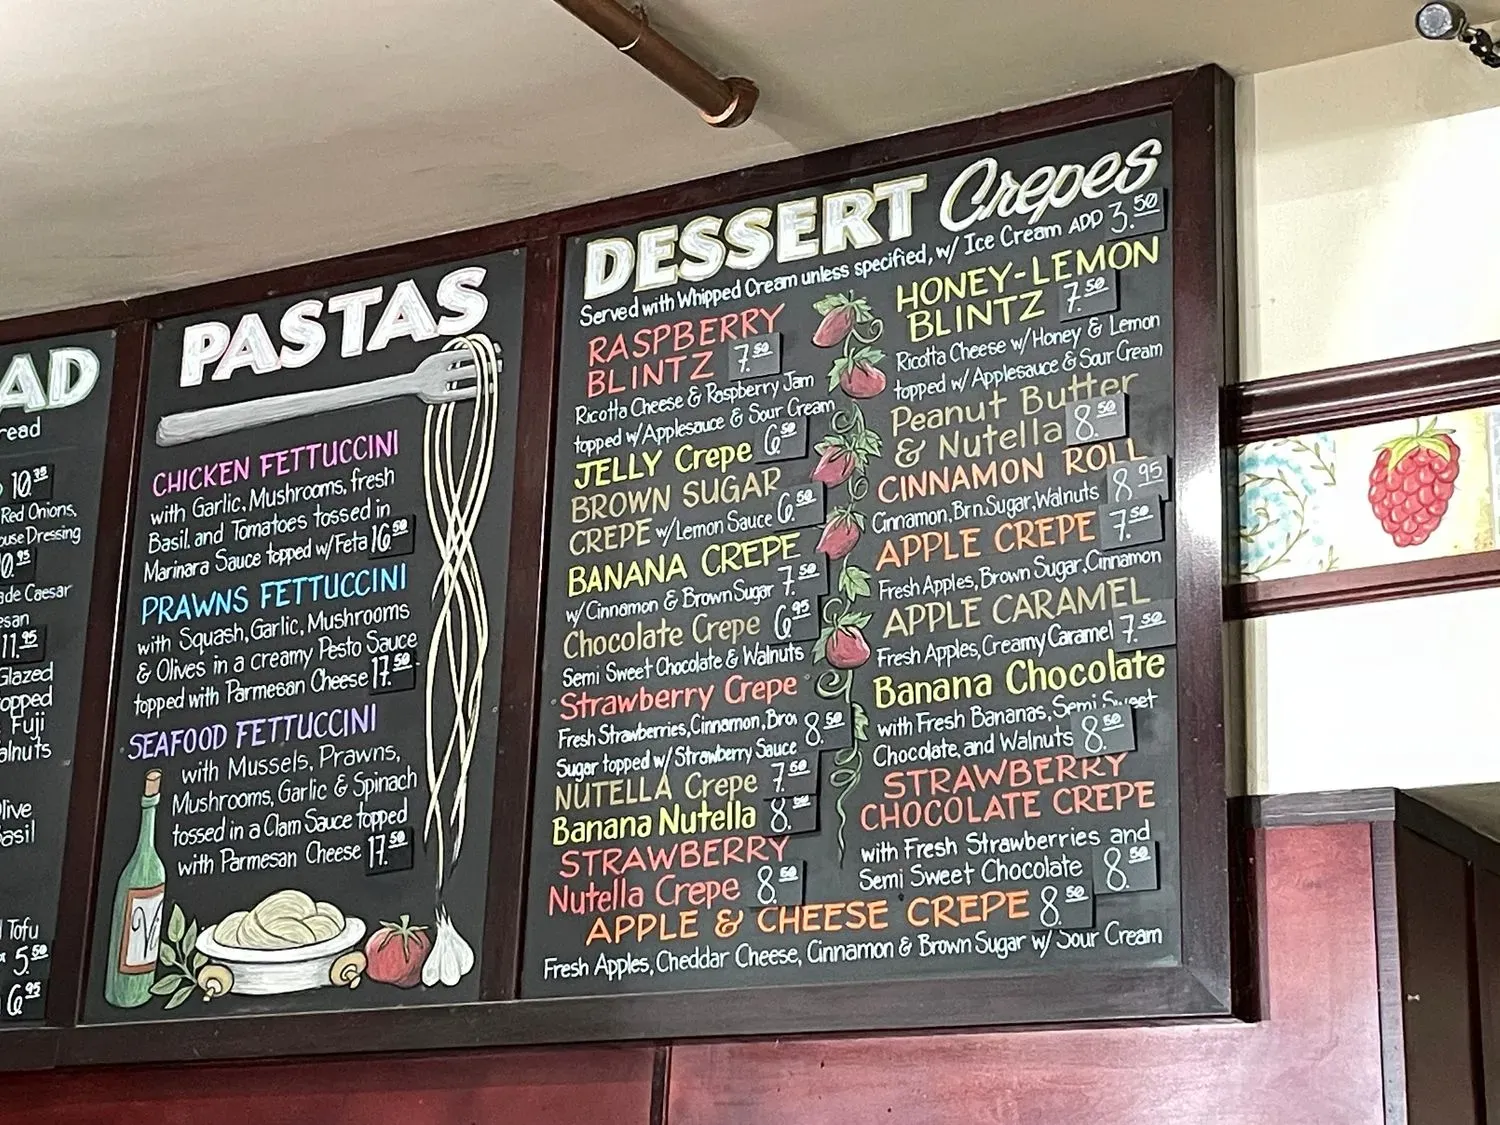 AD
read
10.35
Red Onions,
use Dressing
0.95
ade Caesar
esan
11.95
Glazed
opped
Fuji
alnuts
live
Basil
Tofu
5.50
6.95
PASTAS
CHICKEN FETTUCCINI
with Garlic, Mushrooms, fresh
Basil. and Tomatoes tossed in
Marinara Sauce topped w/Feta 16.50
PRAWNS FETTUCCINI
with Squash, Garlic, Mushrooms
& Olives in a creamy Pesto Sauce
topped with Parmesan Cheese 17.50
SEAFOOD FETTUCCINI
with Mussels, Prawns,
Mushrooms, Garlic & Spinach
tossed in a Clam Sauce topped
with Parmesan Cheese 17.50
DESSERT Crepes
Served with Whipped Cream unless specified, w/ Ice Cream ADD 3.50
RASPBERRY
BLINTZ 7.50
Ricotta Cheese & Raspberry Jam
topped w/Applesauce & Sour Cream
JELLY Crepe 6.50
BROWN SUGAR
CREPE w/Lemon Sauce 6.50
BANANA CREPE
w/Cinnamon & Brown Sugar 7.50
Chocolate Crepe 6.95
Semi Sweet Chocolate & Walnuts
Strawberry Crepe
Fresh Strawberries, Cinnamon, Bro 8.50
Sugar topped w/ Strawberry Sauce
NUTELLA Crepe 7.50
Banana Nutella 8.
STRAWBERRY
Nutella Crepe 8.50
HONEY-LEMON
BLINTZ 7.50
Ricotta Cheese w/Honey & Lemon
topped w/Applesauce & Sour Cream
Peanut Butter
& Nutella 8.50
CINNAMON ROLL
Cinnamon, Brn.Sugar, Walnuts 8.95
APPLE CREPE 7.50
Fresh Apples, Brown Sugar, Cinnamon
APPLE CARAMEL
Fresh Apples, Creamy Caramel 7.50
Banana Chocolate
with Fresh Bananas, Semi Sweet
Chocolate, and Walnuts 8.50
STRAWBERRY
CHOCOLATE CREPE
with Fresh Strawberries and
Semi Sweet Chocolate 8.50
APPLE & CHEESE CREPE 8.50
Fresh Apples, Cheddar Cheese, Cinnamon & Brown Sugar w/ Sour Cream